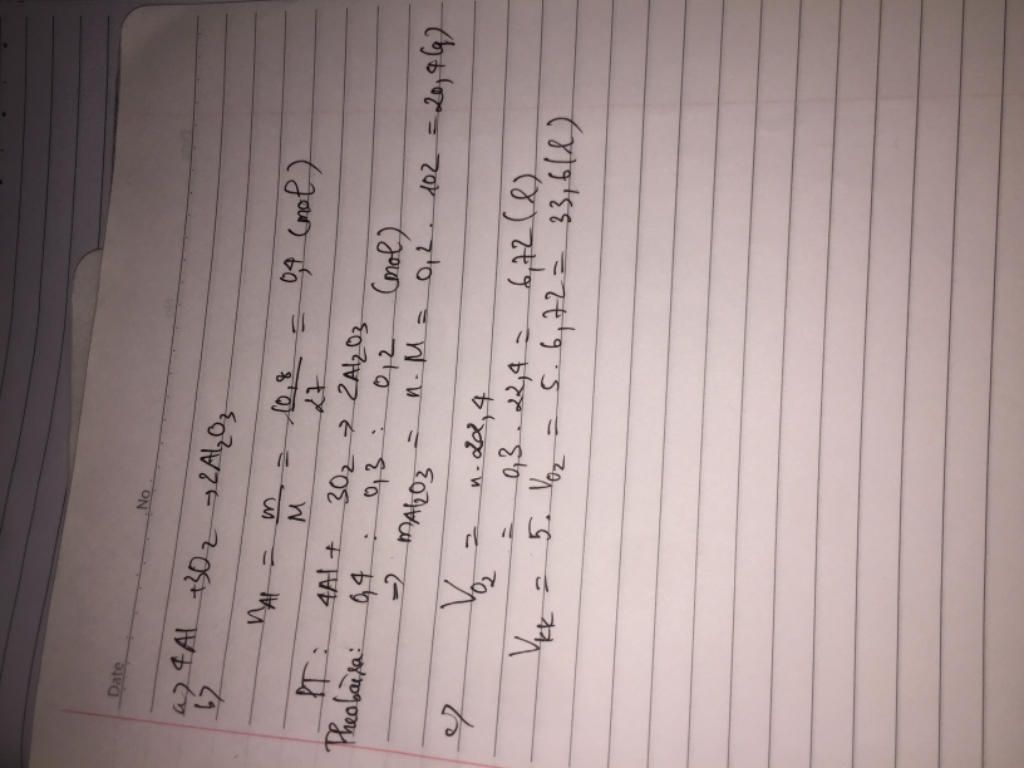 Date
No
a> 4Al +3O2 → 2Al2O3
b>
nAl = m/M = 10,8/27 = 0,4 (mol)
PT: 4Al + 3O2 → 2Al2O3
Theobàipa: 0,4 : 0,3 : 0,2 (mol)
=> mAl2O3 = n.M = 0,2.102 = 20,4(g)
c> VO2 = n.22,4
= 0,3.22,4 = 6,72(l)
Vkk = 5.VO2 = 5.6,72 = 33,6(l)